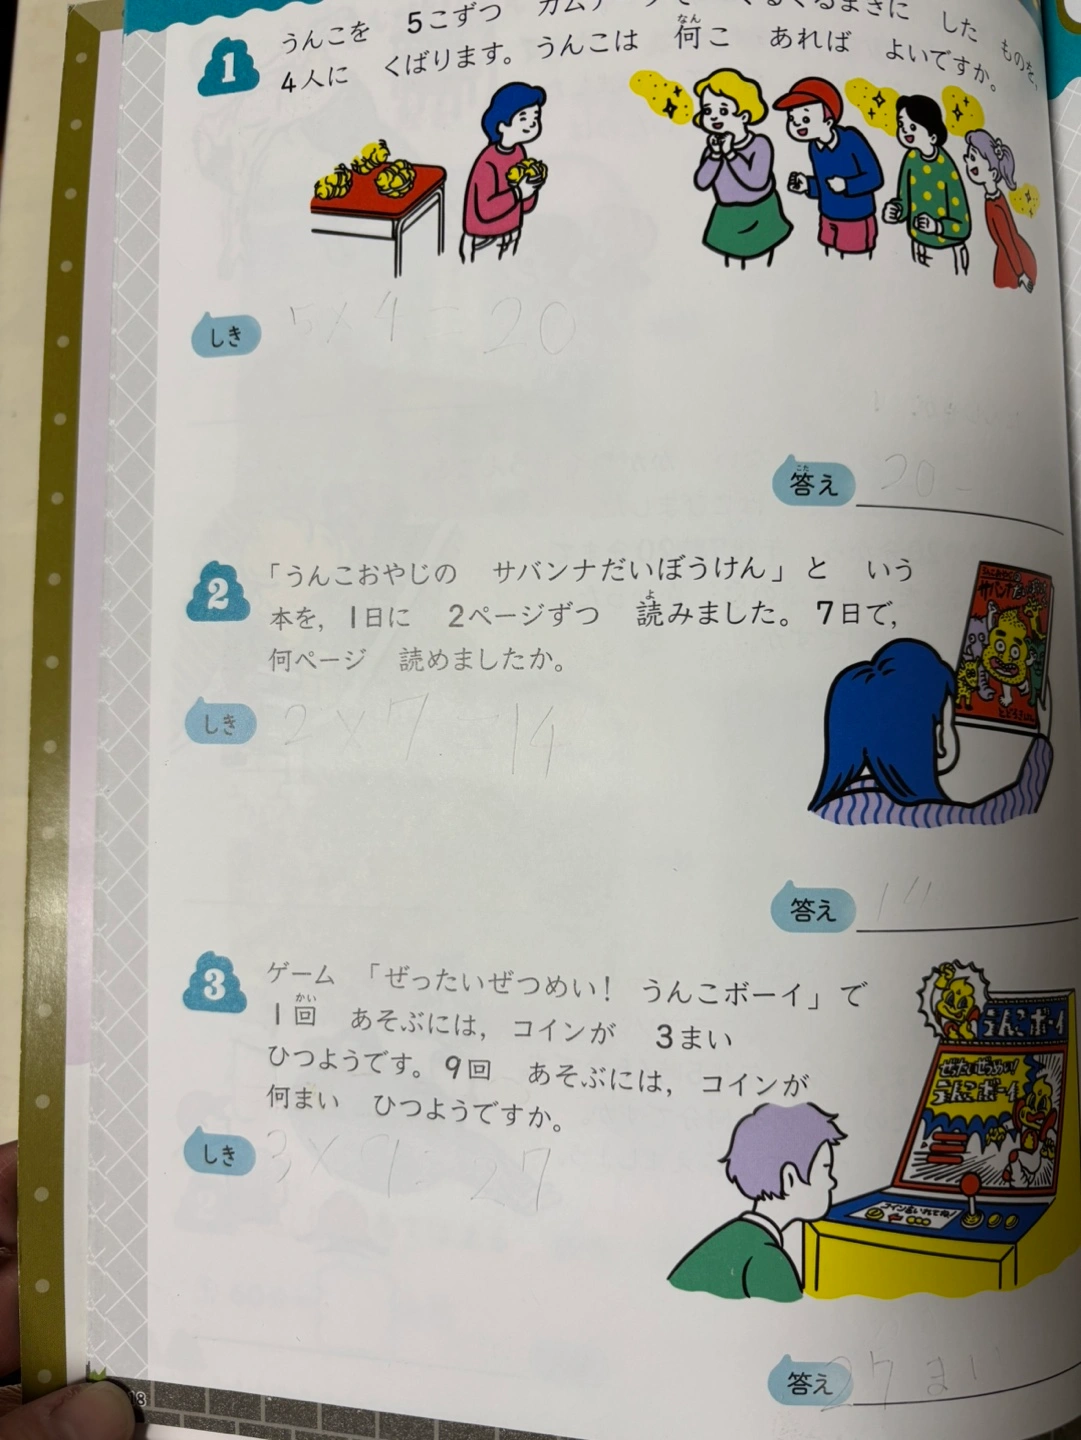 1
うんこを 5こずつ ガムテープで ぐるぐるまきに した ものを,
4人に くばります。うんこは 何こ あれば よいですか。
なん
しき
5×4=20
こた
答え
20
2
「うんこおやじの サバンナだいぼうけん」と いう
本を, 1日に 2ページずつ 読みました。7日で,
よ
何ページ 読めましたか。
しき
2×7=14
答え
14
3
ゲーム 「ぜったいぜつめい! うんこボーイ」で
1回 あそぶには, コインが 3まい
かい
ひつようです。9回 あそぶには, コインが
何まい ひつようですか。
しき
3×9=27
答え
27まい
うんこボーイ
ぜったいぜつめい!
うんこボーイ
コインをいれてね!